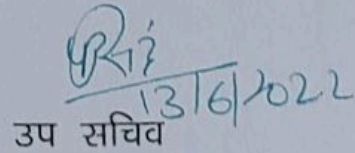 13/6/2022
उप सचिव